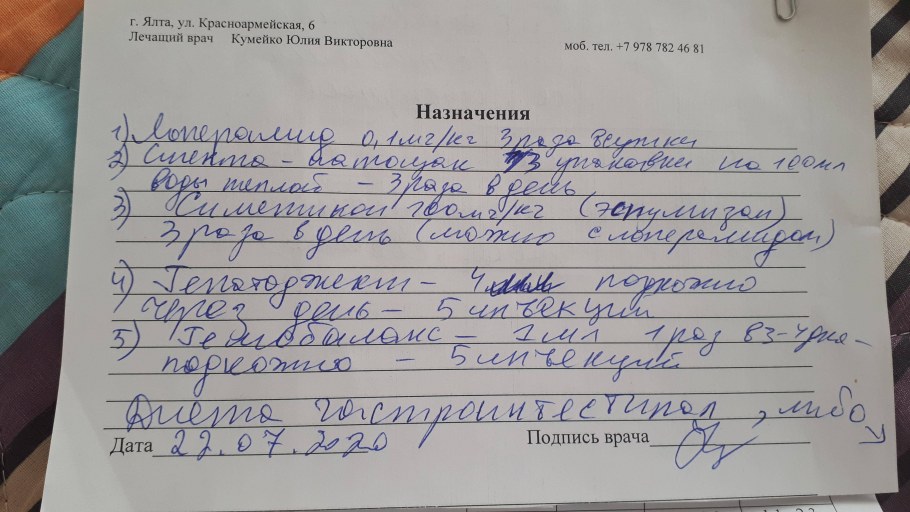 г. Ялта, ул. Красноармейская, 6
Лечащий врач Кумейко Юлия Викторовна
моб. тел. +7 978 782 46 81
Назначения
1) Лоперамид 0,1мг/кг 3 раза в сутки
2) Смекта - на 100мл
воды теплой - 3 раза в день
3) Симетикон 100мг/кг (эспумизан)
3 раза в день (можно с лоперамидом)
4) Гепатоджект - подкожно
через день - 5 инъекций
5) Гемобаланс - 1мл 1 раз в 3-4 дня -
подкожно - 5 инъекций
Диета гастроинтестинал, либо
Дата 22.07.2020 Подпись врача